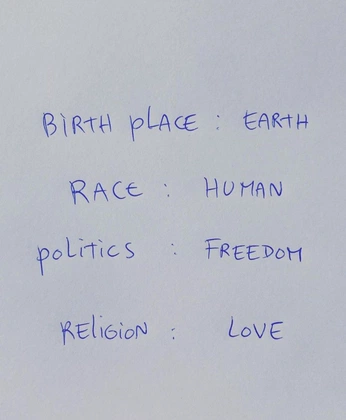 BiRTH pLACE : EARTH
RACE : HUMAN
politics : FREEDOM
RELiGiON : LOVE